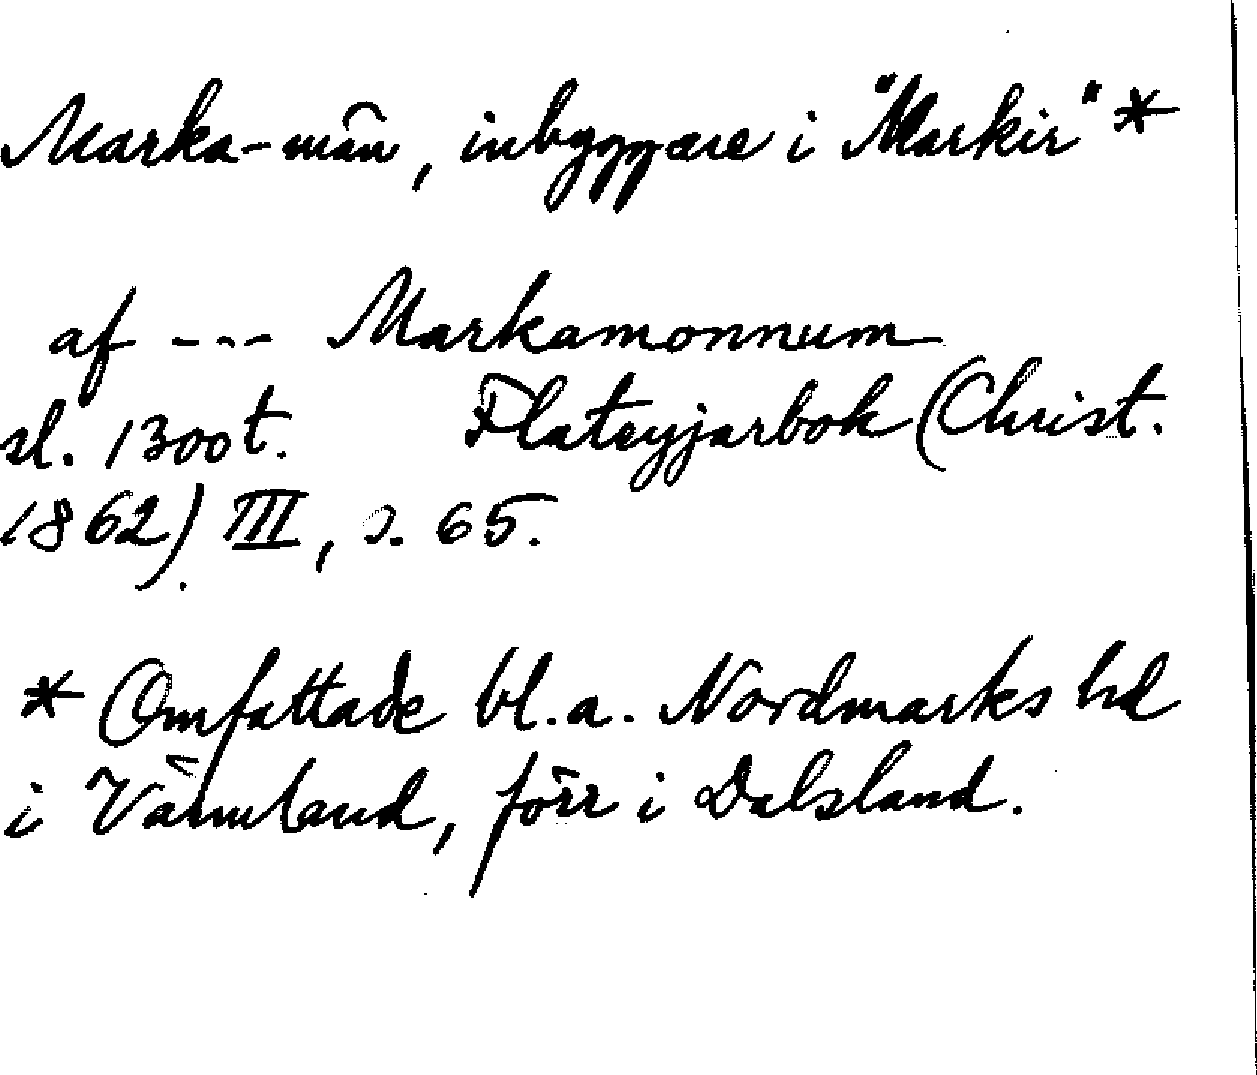 Marka-män, inbyggare i "Markir" *
af --- Markamonnum
sl. 1300t. Flateyjarbok (Christ.
1862) III, s. 65.
* Omfattade bl.a. Nordmarks hd
i Värmland, förr i Dalsland.